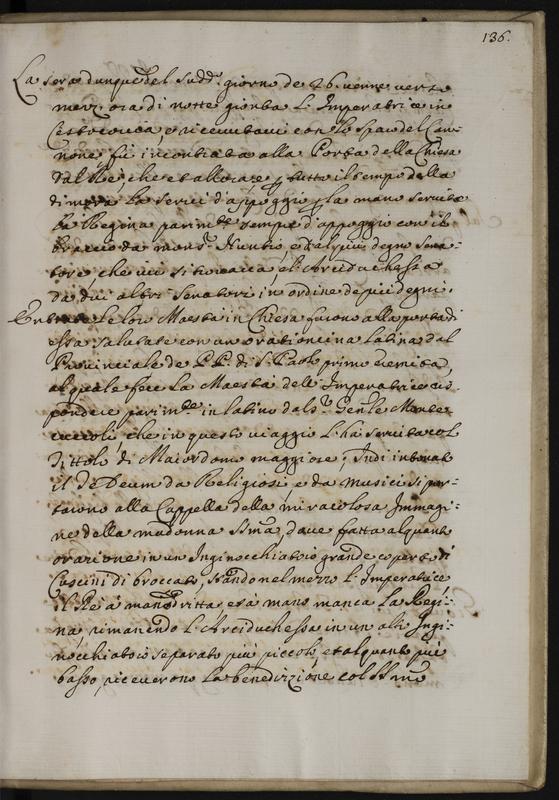 136.
La sera dunque del sudd.º giorno de 26. venne verso
mezz'ora di notte gionta l'Imperatrice in
Cestocouia, e riceuutaui con lo sparo del Can-
none, fù incontrata alla Porta della Chiesa
dal Rè, che et allora, e p tutto il tempo della
dimora la seruì d'appoggio p la mano seruita
la Regina parim.te sempre d'appoggio con il
braccio da mons.r Nuntio, e dal più degno Sena-
tore, che iui si trouaua, e l'Arciduchessa
da dui altri Senatori in ordine de più degni.
Entrate le loro Maestà in Chiesa furono alla porta di
essa salutate con un'orationcina latina dal
Prouinciale de PP. di S. Paolo primo eremita,
al quale fece la Maestà dell'Imperatrice ris-
pondere parim.te in latino dal S.r Gen.le Monte-
cuccoli, che in questo uiaggio l'hà seruita col
Tittolo di Maiordomo maggiore; Indi intonato
il Te Deum da Religiosi, e da musici si por-
tarono alla Cappella della miracolosa Immagi-
ne della madonna S.ma, doue fatta alquanto
orazione in un Inginocchiatoio grande coperto di
Cuscini di broccato, stando nel mezzo l'Imperatrice
il Rè à mano dritta, et à mano manca la Regi-
na, rimanendo l'Arciduchessa in un altro Ingi-
nocchiatoio separato più piccolo, et alquanto più
basso, riceuerono la benedizione col SS.mo